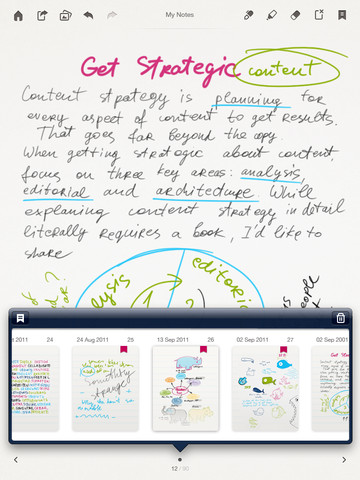 My Notes
Get Strategic content
Content strategy is planning for
every aspect of content to get results.
That goes far beyond the copy.
When getting strategic about content,
focus on three key areas: analysis,
editorial and architecture. While
explaning content strategy in detail
literally requires a book, I'd like to
share
analysis
editoria
people
2011 24
24 Aug 2011 25
13 Sep 2011 26
02 Sep 2011 27
02 Sep 2011
12 / 90